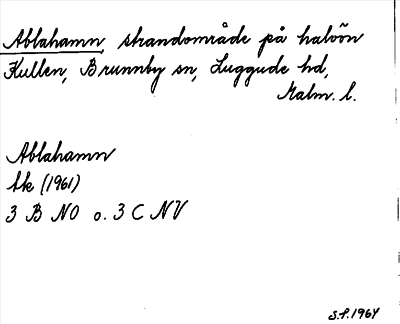 Ablahamn strandområde på halvön
Kullen, Brunnby sn, Luggude hd,
Malm. l.
Ablahamn
tk (1961)
3 B NO o. 3 C NV
S.F. 1964